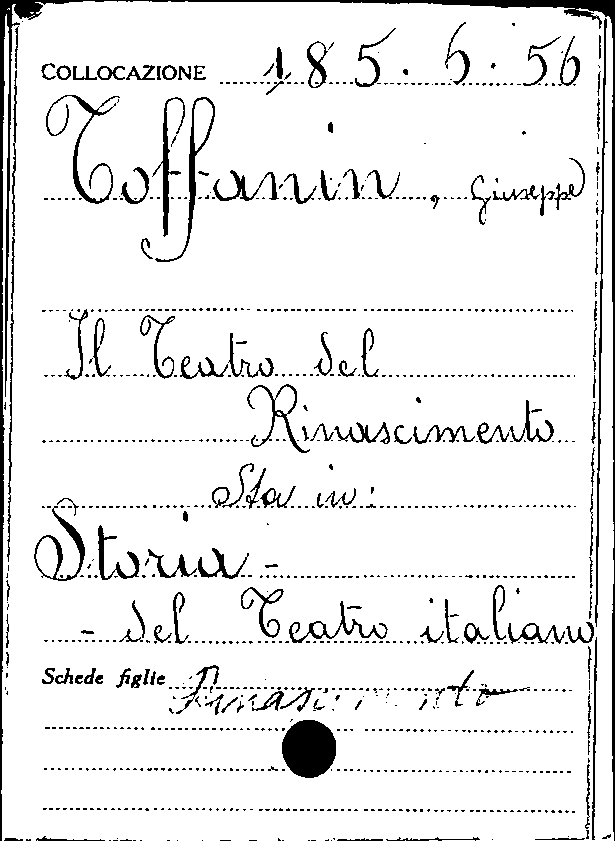 COLLOCAZIONE 185.6.56
Toffanin, Giuseppe
Il Teatro del
Rinascimento
Sta in:
Storia -
- del Teatro italiano
Schede figlie Rinascimento